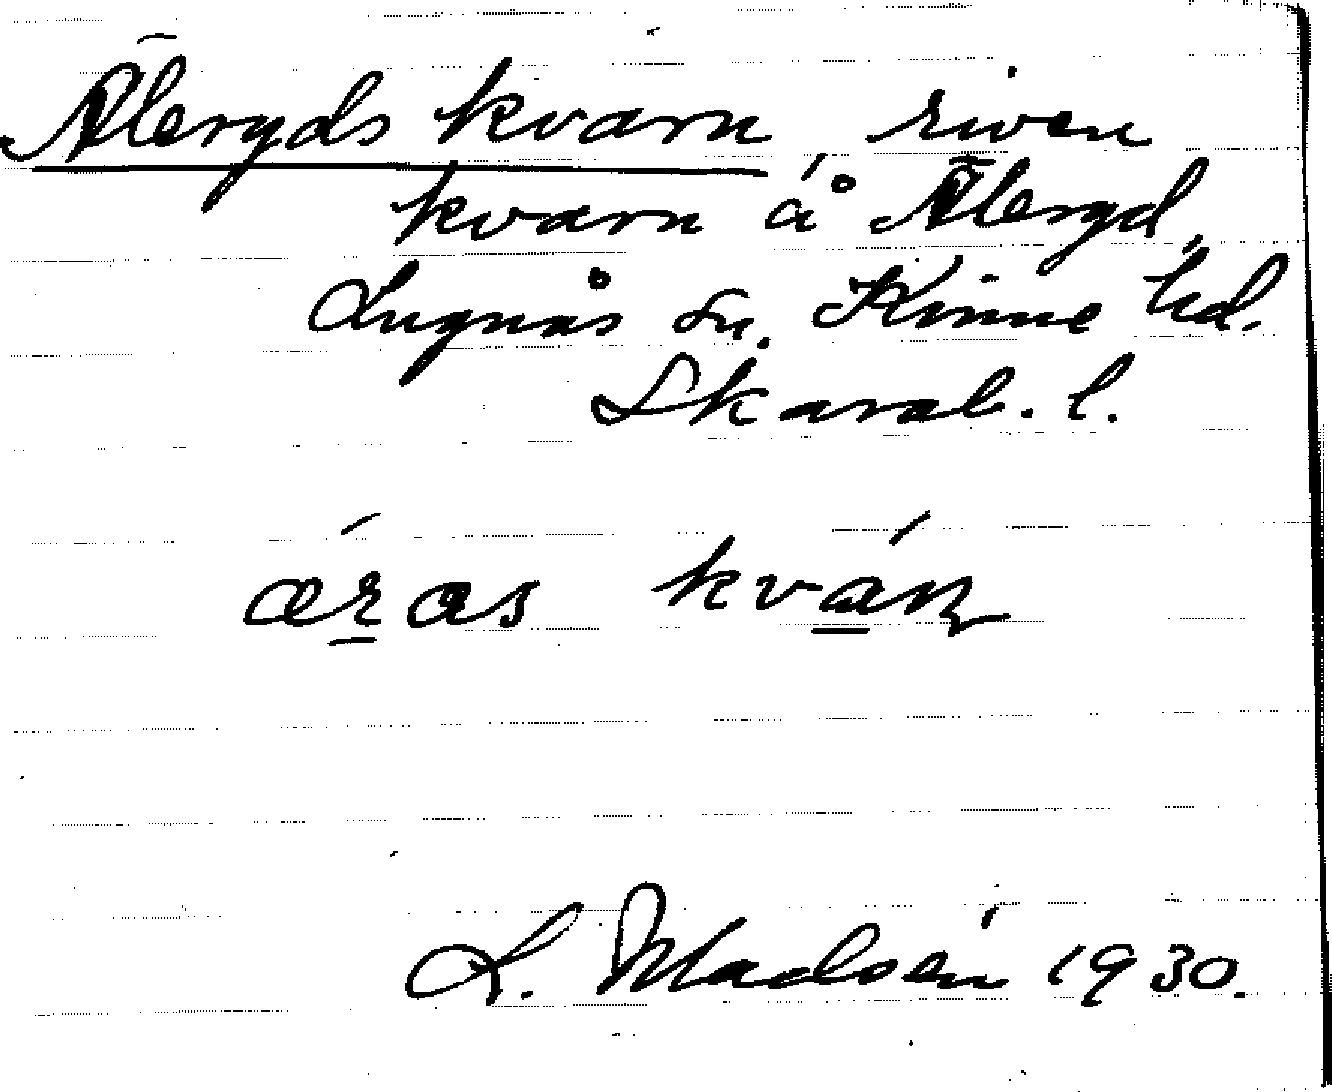 Äleryds kvarn, riven
kvarn å Äleryd,
Lugnås sn. Kinne hd.
Skarab. l.
ǽras kván
L. Madsén 1930.